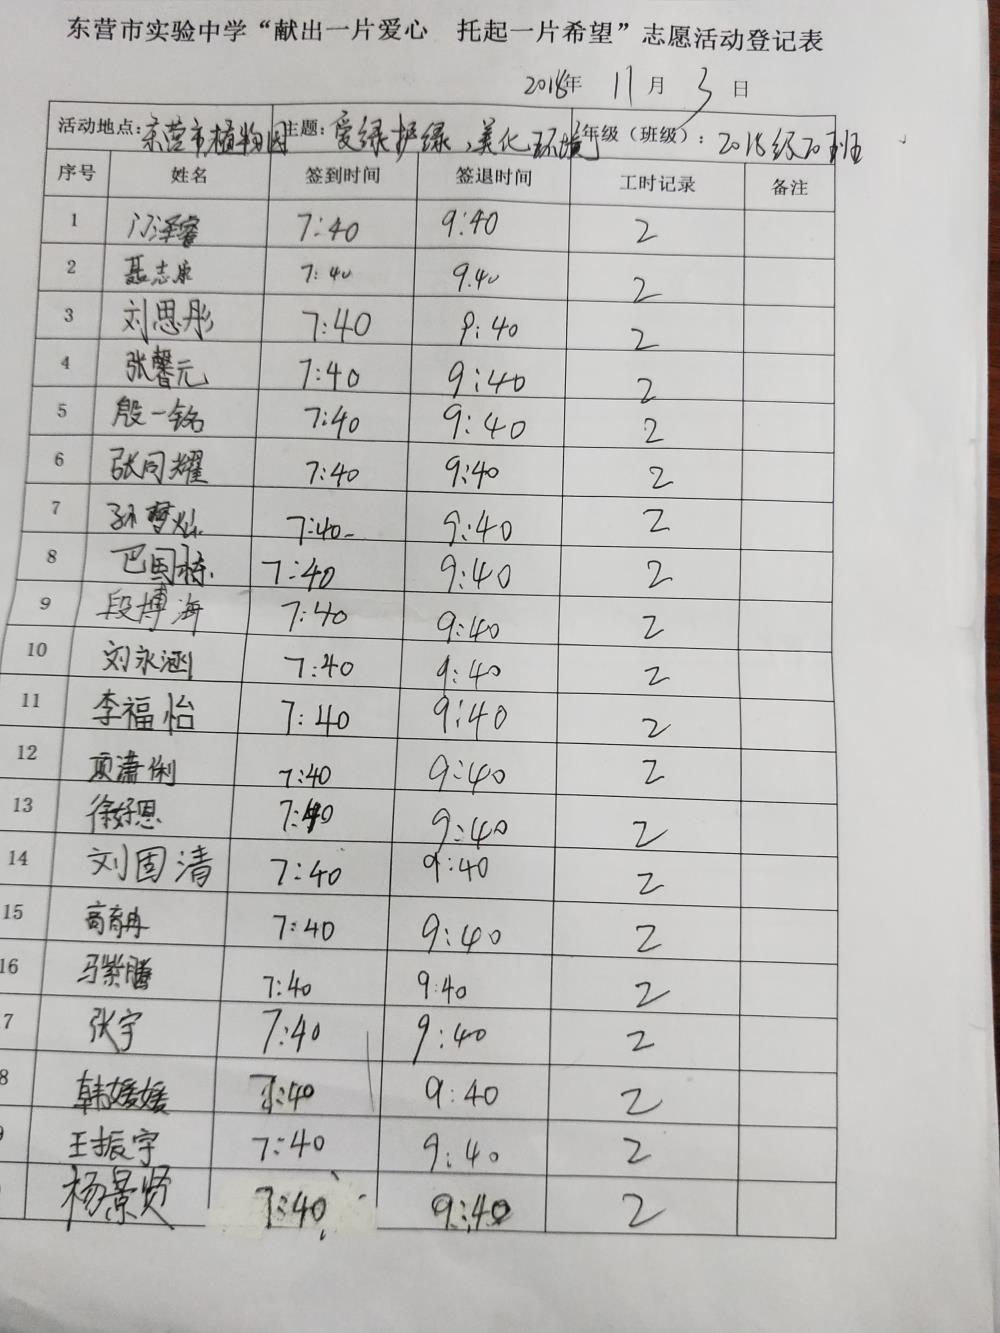 东营市实验中学“献出一片爱心 托起一片希望”志愿活动登记表
2018年 11月 3日
活动地点：东营市植物园 主题：爱绿护绿，美化环境 年级（班级）：2018级20班
序号 姓名 签到时间 签退时间 工时记录 备注
1 门泽睿 7:40 9:40 2
2 聂志康 7:40 9:40 2
3 刘思彤 7:40 9:40 2
4 张馨元 7:40 9:40 2
5 殷一铭 7:40 9:40 2
6 张同耀 7:40 9:40 2
7 孙梦灿 7:40 9:40 2
8 巴国栋 7:40 9:40 2
9 段博海 7:40 9:40 2
10 刘永涵 7:40 9:40 2
11 李福怡 7:40 9:40 2
12 项潇俐 7:40 9:40 2
13 徐好恩 7:40 9:40 2
14 刘固清 7:40 9:40 2
15 商育冉 7:40 9:40 2
16 马紫腾 7:40 9:40 2
7 张宇 7:40 9:40 2
8 韩媛媛 7:40 9:40 2
9 王振宇 7:40 9:40 2
杨景贤 7:40 9:40 2